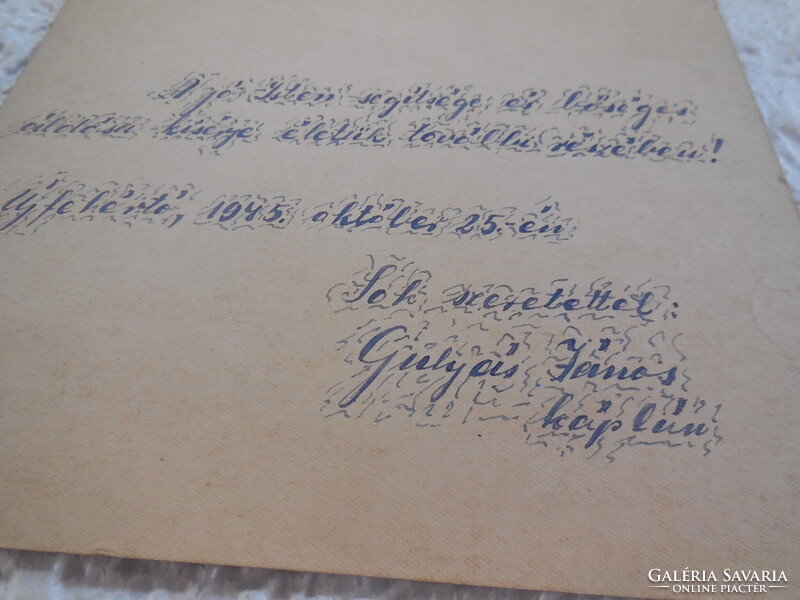 A jó Isten segítsége és bőséges
áldása kísérje életük további részében!
Újfehértó, 1945. október 25.-én
Sok szeretettel:
Gulyás János
káplán
GALÉRIA SAVARIA
ONLINE PIACTÉR